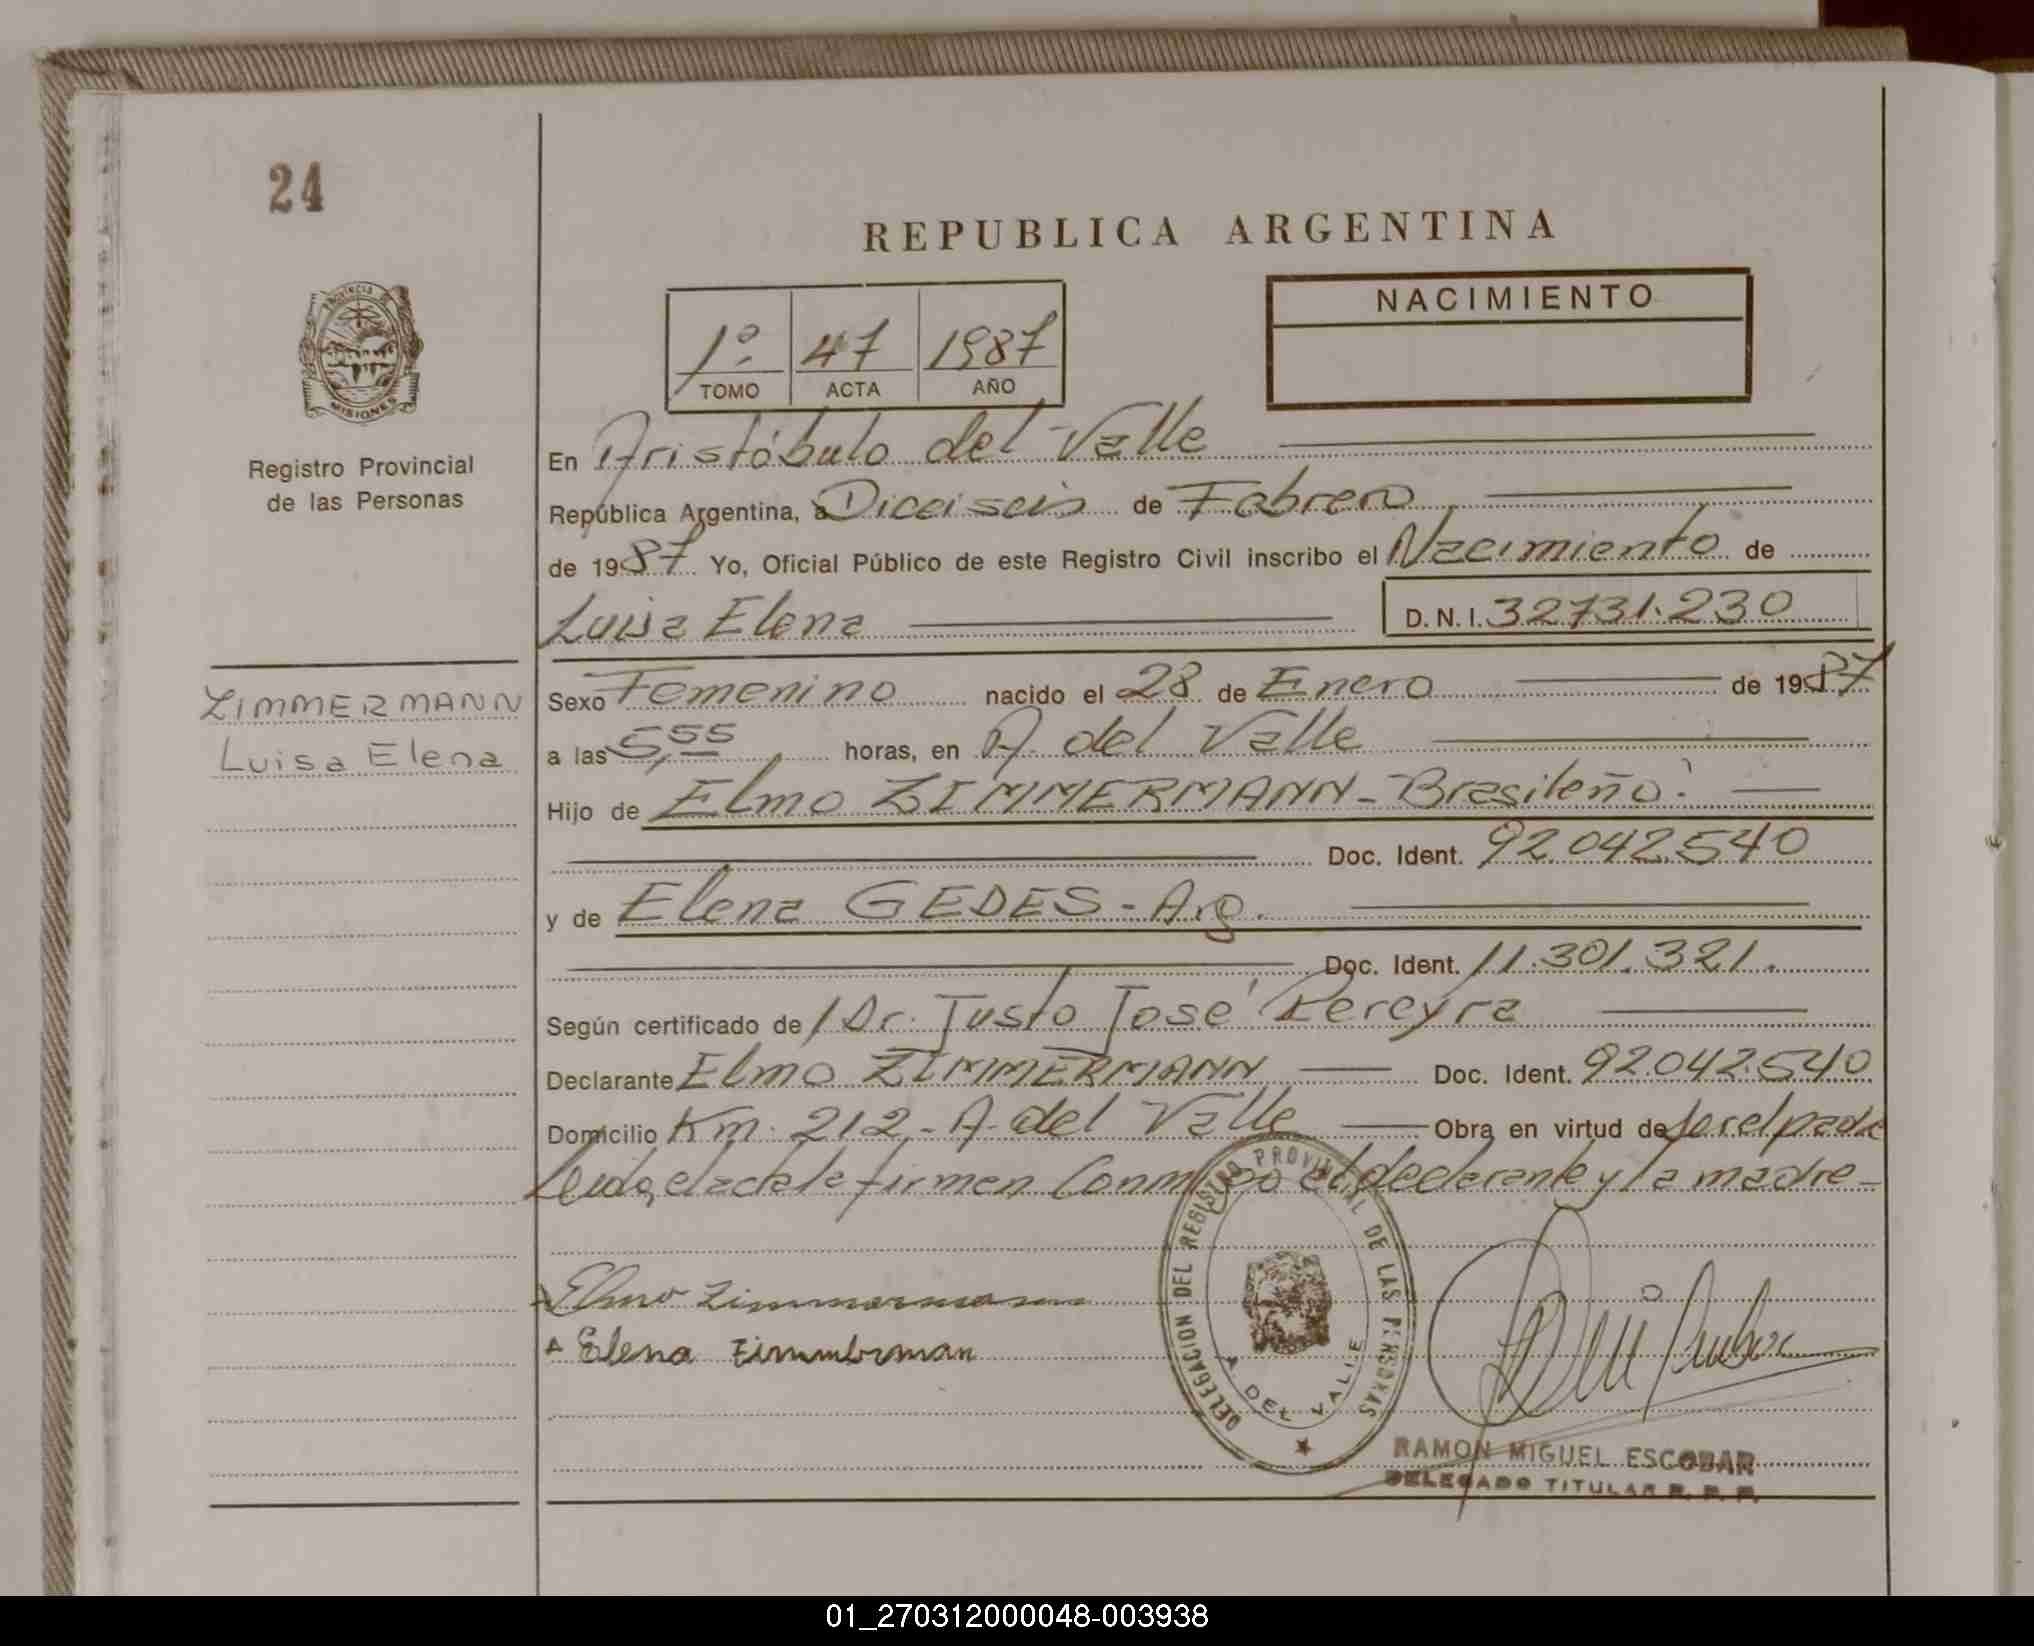 24
REPUBLICA ARGENTINA
NACIMIENTO
1º 47 1987
TOMO ACTA AÑO
PROVINCIA DE
MISIONES
Registro Provincial
de las Personas
En Aristóbulo del Valle
República Argentina, a Diceiseis de Febrero
de 1987 Yo, Oficial Público de este Registro Civil inscribo el Nacimiento de
Luisa Elena D.N.I. 32731.230
ZIMMERMANN
Luisa Elena
Sexo Femenino nacido el 28 de Enero de 1987
a las 5,55 horas, en A. del Valle
Hijo de Elmo ZIMMERMANN - Brasileño.
Doc. Ident. 92.042.540
y de Elena GEDES - Arg.
Doc. Ident. 11.301.321.
Según certificado de Dr. Justo José Pereyra
Declarante Elmo ZIMMERMANN Doc. Ident. 92.042.540
Domicilio Km. 212 - A. del Valle Obra en virtud de ser el padre
Leida el acta la firman Conmigo el declarante y la madre -
Elmo Zimmermann
Elena Zimmbrman
DELEGACION DEL REGISTRO PROVINCIAL DE LAS PERSONAS
A. DEL VALLE
RAMON MIGUEL ESCOBAR
DELEGADO TITULAR R. P. P.
01_270312000048-003938